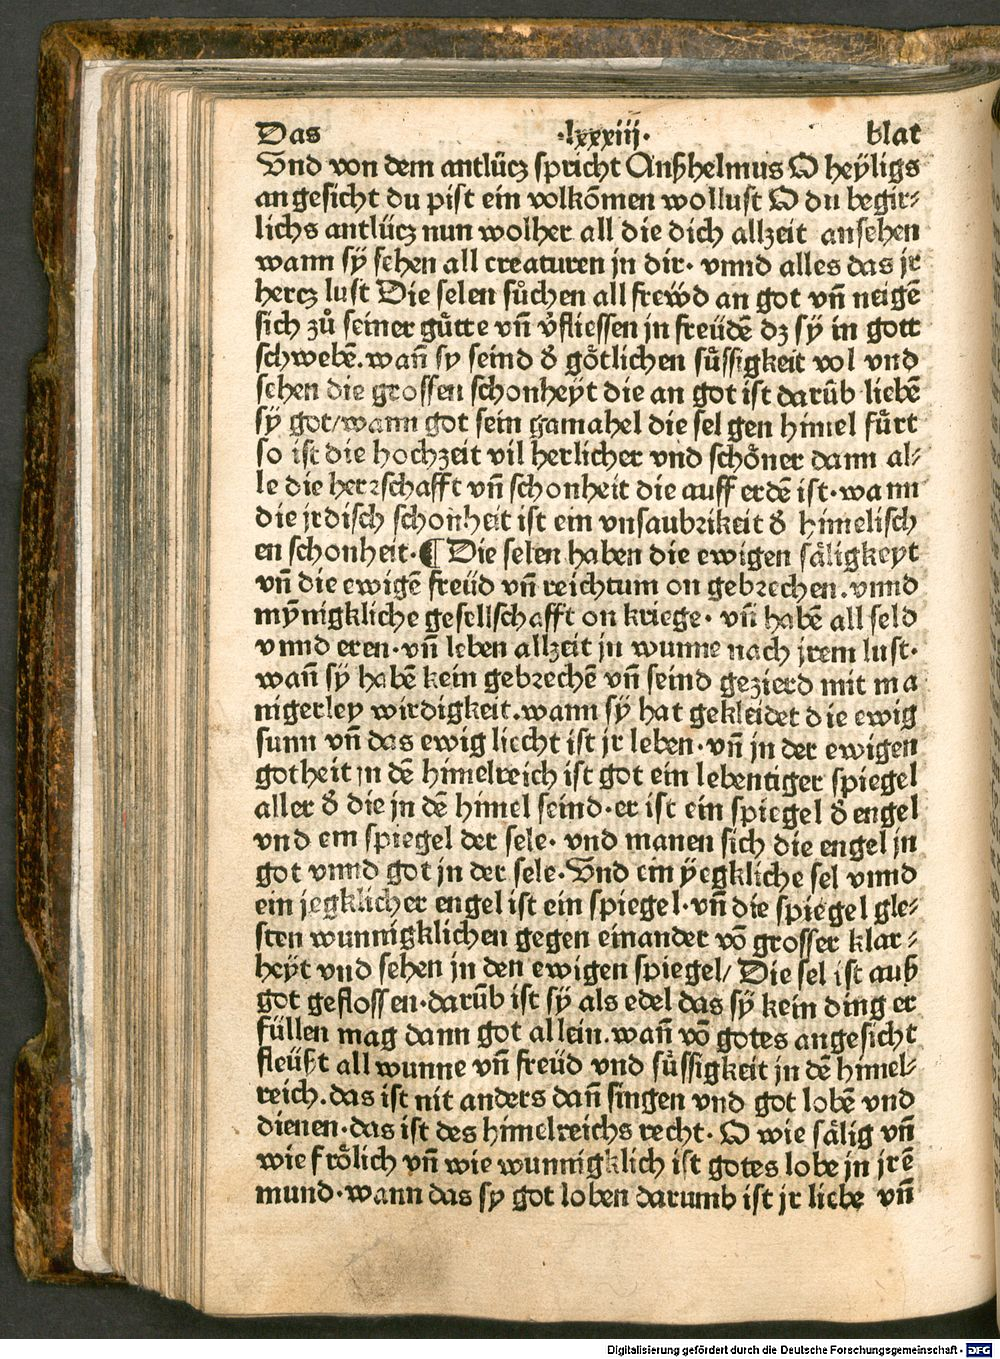 Das ·lxxxiij· blat
Vnd von dem antlücz spricht Anßhelmus O heÿligs
angesicht du pist ein volkõmen wollust O du begir⸗
lichs antlücz nun wolher all die dich allzeit ansehen
wann sÿ sehen all creaturen in dir· vnnd alles das jr
hercz lust Die selen sůchen all frewd an got vñ neigẽ
sich zů seiner gůtte vñ v̉fliessen jn freüdẽ dz sÿ in gott
schwebẽ. wañ sy seind ð gǒtlichen sǔssigkeit vol vnd
sehen die grossen schonheÿt die an got ist darũb liebẽ
sÿ got/wann got sein gamahel die sel gen himel fůrt
so ist die hochzeit vil herlicher vnd schǒner dann al⸗
le die herrschafft vñ schonheit die auff erdẽ ist·wann
die jrdisch schonheit ist ein vnsaubrikeit ð himelisch
en schonheit·¶ Die selen haben die ewigen sǎligkeyt
vñ die ewigẽ freüd vñ reichtum on gebrechen.vnnd
mÿnigkliche gesellschafft on kriege· vñ habẽ all seld
vnnd eren·vñ leben allzeit in wunne nach jrem lust·
wañ sÿ habẽ kein gebrechẽ vñ seind gezierd mit ma
nigerley wirdigkeit.wann sÿ hat gekleidet die ewig
sunn vñ das ewig liecht ist jr leben·vñ jn der ewigen
gotheit jn dẽ himelreich ist got ein lebentiger spiegel
aller ð die jn dẽ himel seind·er ist ein spiegel ð engel
vnd ein spiegel der sele· vnd manen sich die engel jn
got vnnd got jn der sele·Vnd ein ÿegkliche sel vnnd
ein jegklicher engel ist ein spiegel·vñ die spiegel gle⸗
sten wunnigklichen gegen einander võ grosser klar⸗
heÿt vnd sehen jn den ewigen spiegel/ Die sel ist auß
got geflossen·darũb ist sÿ als edel das sÿ kein ding er
füllen mag dann got allein.wañ võ gotes angesicht
fleüßt all wunne vñ freüd vnd sǔssigkeit jn dẽ himel⸗
reich.das ist nit anders dañ singen vnd got lobẽ vnd
dienen·das ist des himelreichs recht· O wie sǎlig vñ
wie frǒlich vñ wie wunnigklich ist gotes lobe jn jrẽ
mund·wann das sy got loben darumb ist jr liebe vñ
Digitalisierung gefördert durch die Deutsche Forschungsgemeinschaft - DFG